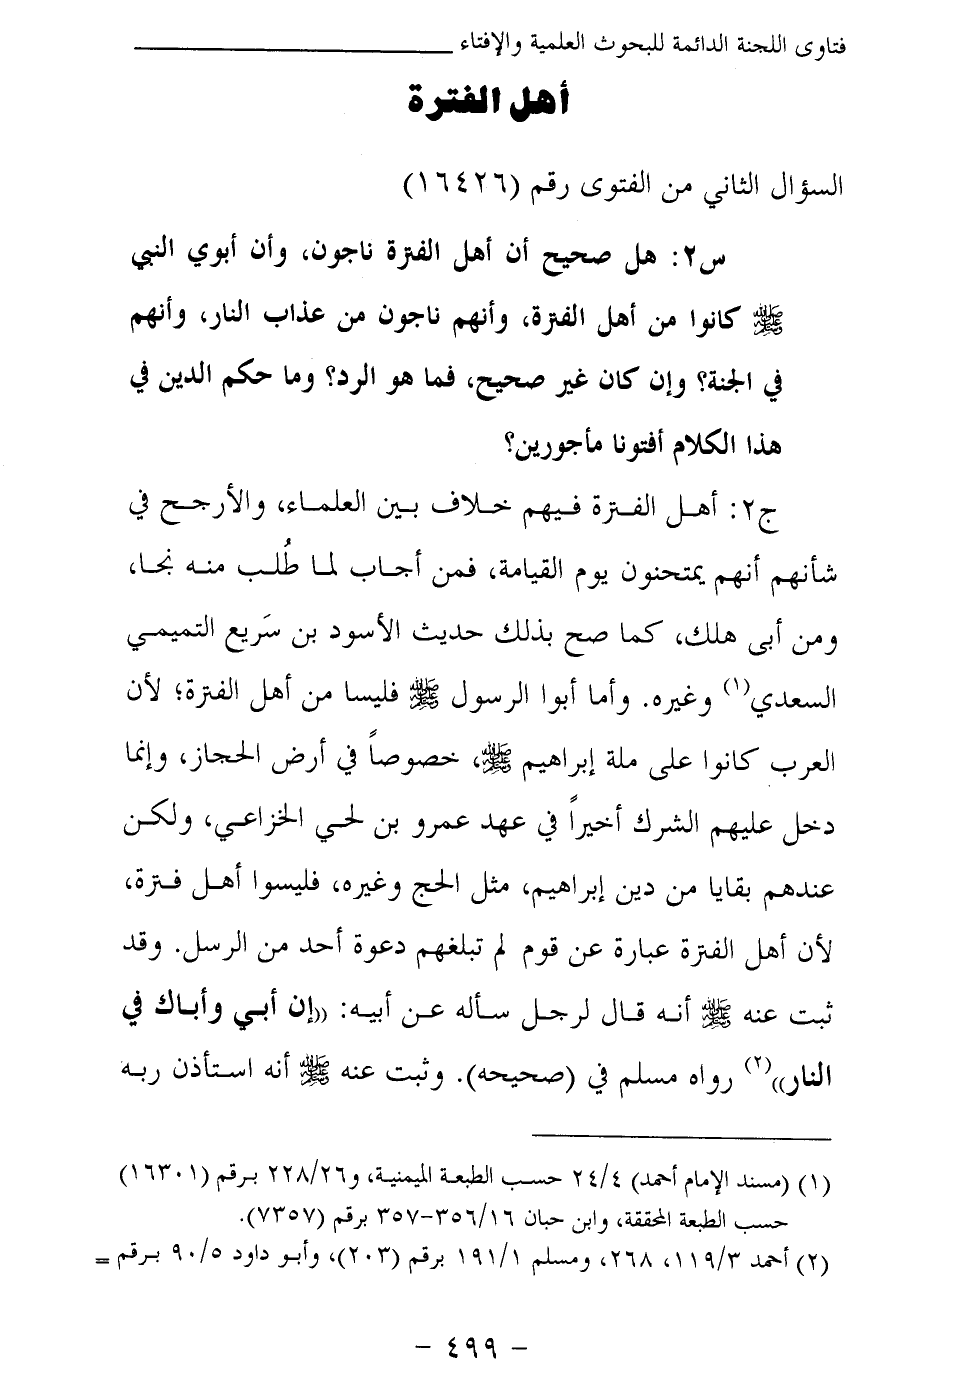 فتاوى اللجنة الدائمة للبحوث العلمية والإفتاء
أهل الفترة
السؤال الثاني من الفتوى رقم (١٦٤٢٦)
س٢: هل صحيح أن أهل الفترة ناجون، وأن أبوي النبي
ﷺ كانوا من أهل الفترة، وأنهم ناجون من عذاب النار، وأنهم
في الجنة؟ وإن كان غير صحيح، فما هو الرد؟ وما حكم الدين في
هذا الكلام أفتونا مأجورين؟
ج٢: أهل الفترة فيهم خلاف بين العلماء، والأرجح في
شأنهم أنهم يمتحنون يوم القيامة، فمن أجاب لما طُلب منه نجا،
ومن أبى هلك، كما صح بذلك حديث الأسود بن سَريع التميمي
السعدي(١) وغيره. وأما أبوا الرسول ﷺ فليسا من أهل الفترة؛ لأن
العرب كانوا على ملة إبراهيم ﷺ، خصوصاً في أرض الحجاز، وإنما
دخل عليهم الشرك أخيراً في عهد عمرو بن لحي الخزاعي، ولكن
عندهم بقايا من دين إبراهيم، مثل الحج وغيره، فليسوا أهل فترة،
لأن أهل الفترة عبارة عن قوم لم تبلغهم دعوة أحد من الرسل. وقد
ثبت عنه ﷺ أنه قال لرجل سأله عن أبيه: ((إن أبي وأباك في
النار))(٢) رواه مسلم في (صحيحه). وثبت عنه ﷺ أنه استأذن ربه
(١) (مسند الإمام أحمد) ٢٤/٤ حسب الطبعة الميمنية، و٢٢٨/٢٦ برقم (١٦٣٠١)
حسب الطبعة المحققة، وابن حبان ٣٥٦/١٦-٣٥٧ برقم (٧٣٥٧).
(٢) أحمد ١١٩/٣، ٢٦٨، ومسلم ١٩١/١ برقم (٢٠٣)، وأبو داود ٩٠/٥ برقم =
- ٤٩٩ -